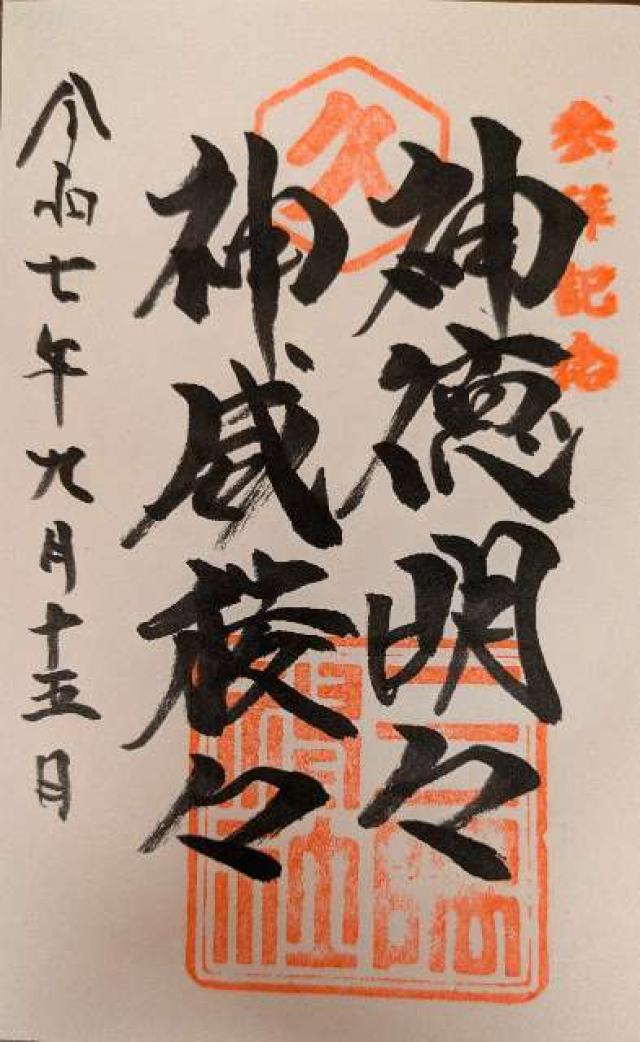 参拝記念
久
神徳明々
神威稜々
令和七年九月十五日